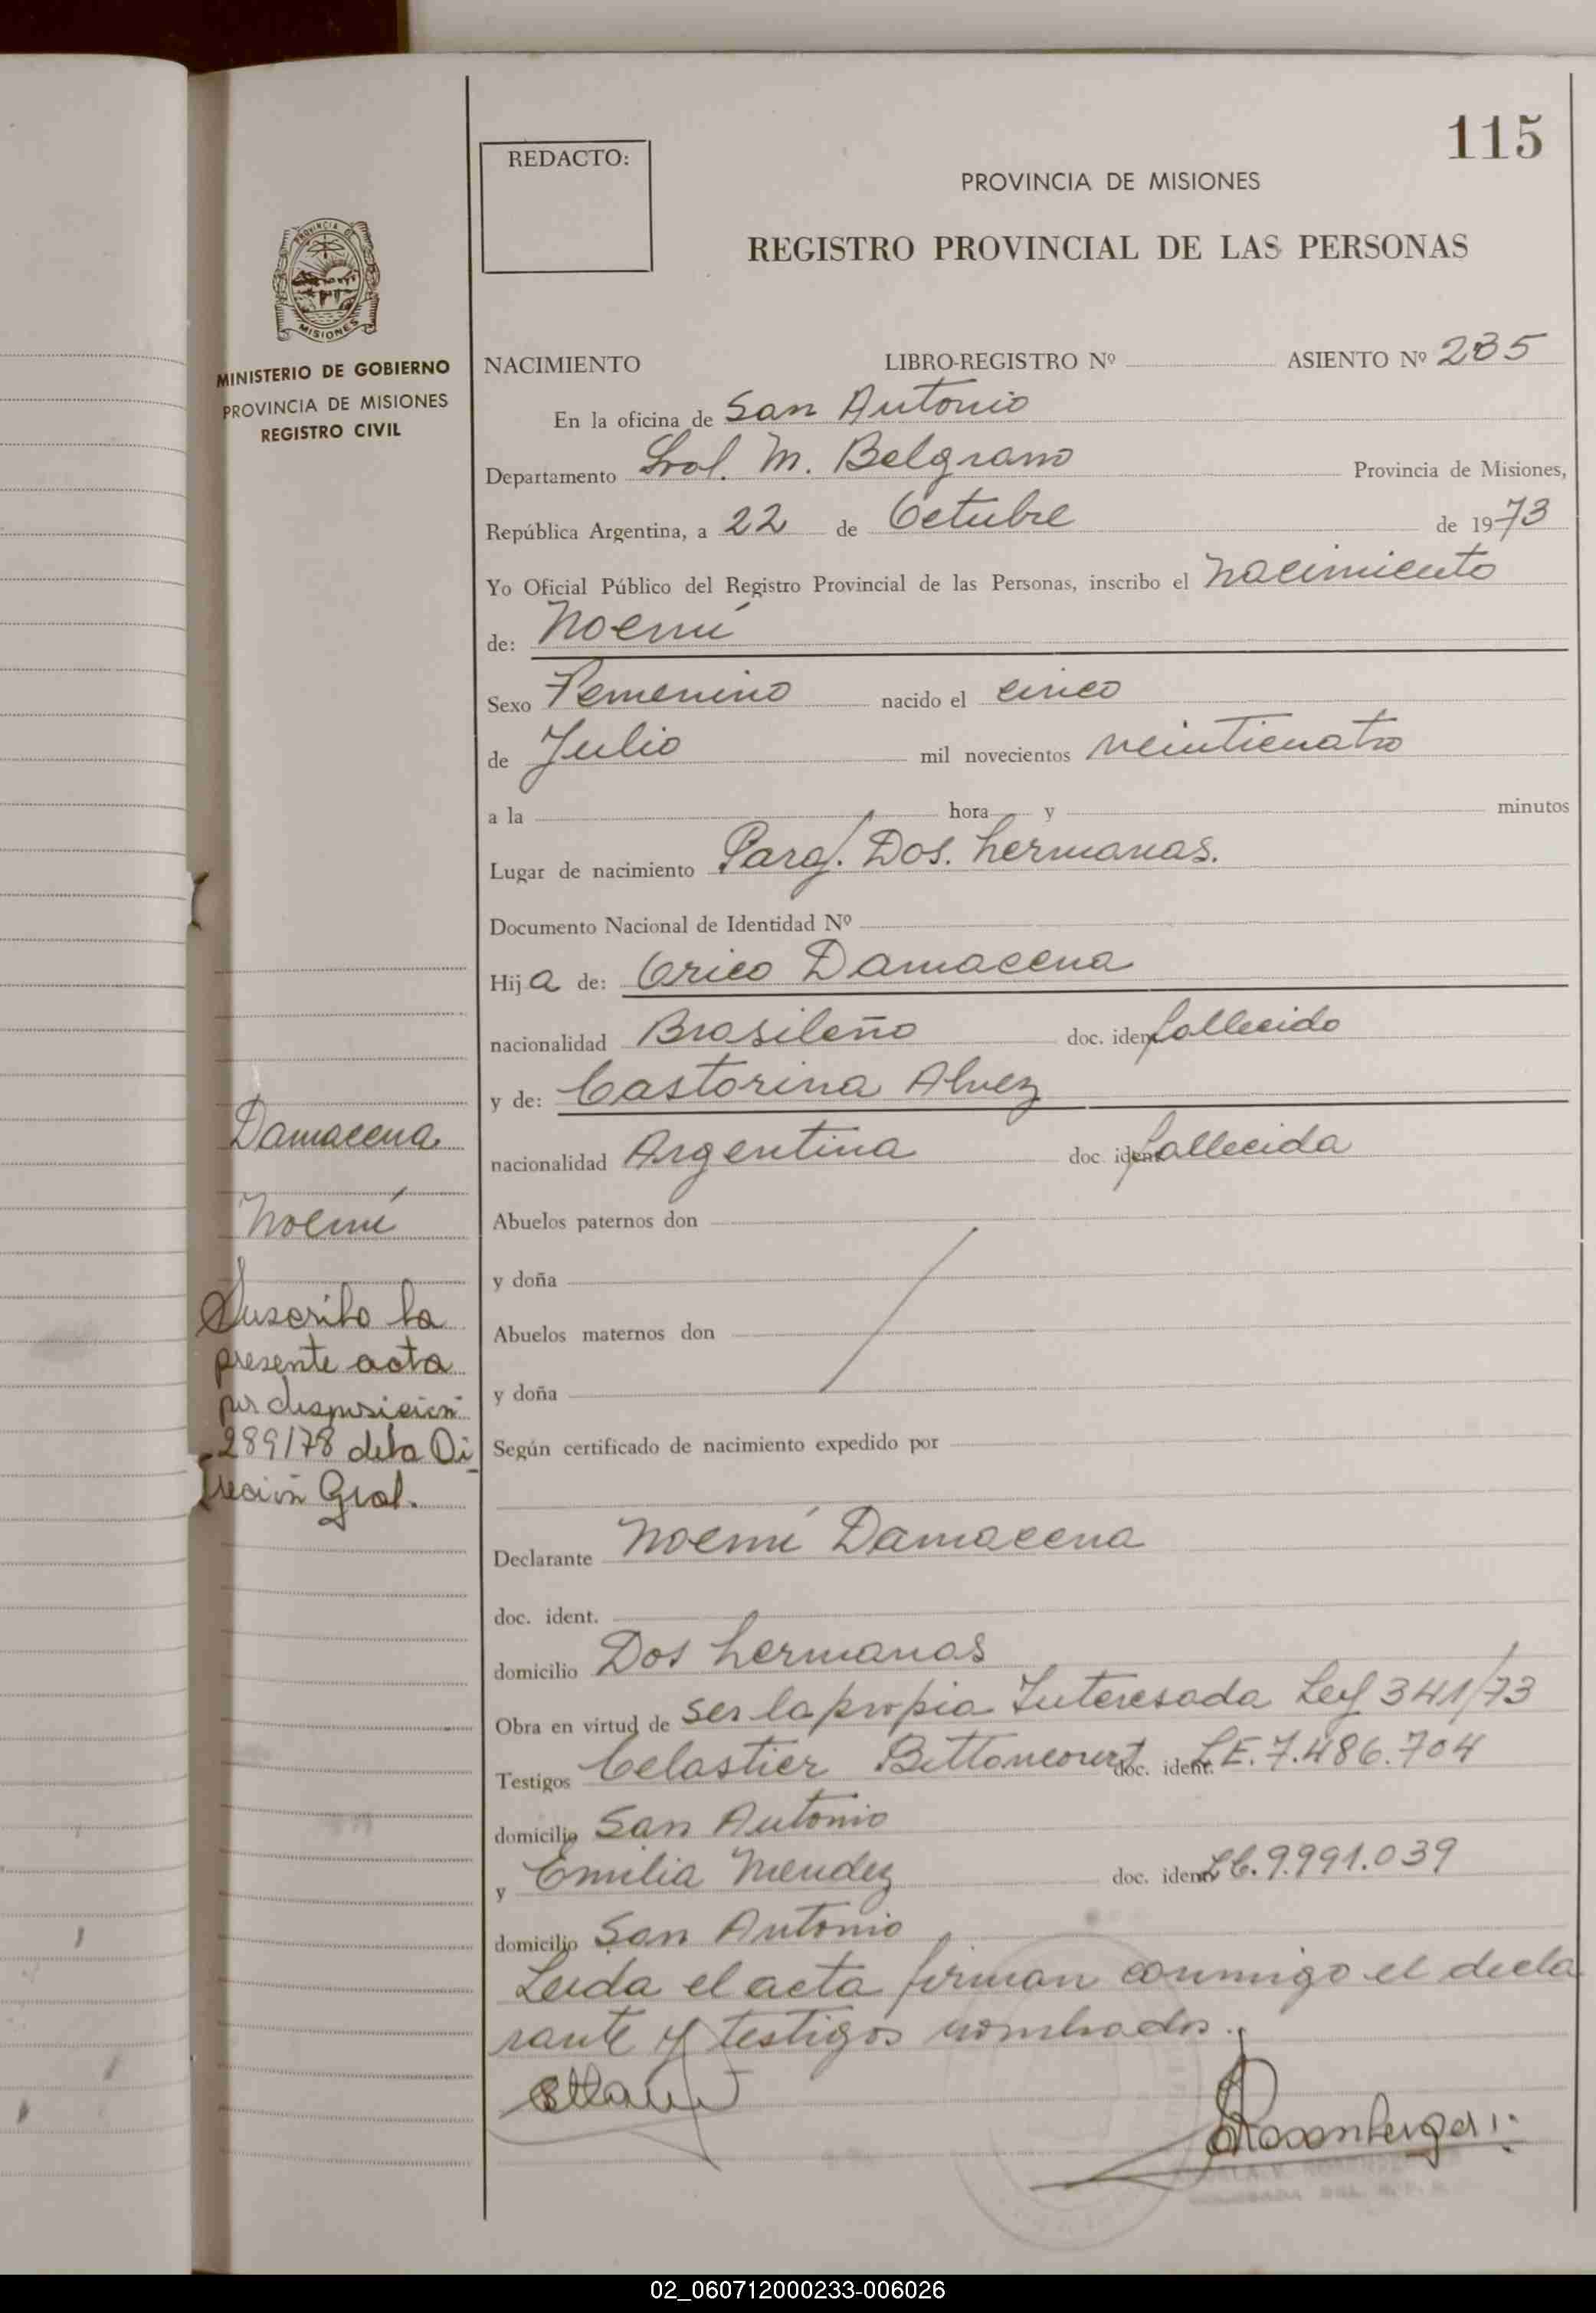 115
REDACTO:
PROVINCIA DE MISIONES
REGISTRO PROVINCIAL DE LAS PERSONAS
PROVINCIA DE
MISIONES
MINISTERIO DE GOBIERNO
PROVINCIA DE MISIONES
REGISTRO CIVIL
NACIMIENTO LIBRO-REGISTRO Nº ASIENTO Nº 235
En la oficina de San Antonio
Departamento Gral. M. Belgrano Provincia de Misiones,
República Argentina, a 22 de Octubre de 1973
Yo Oficial Público del Registro Provincial de las Personas, inscribo el nacimiento
de: Noemí
Sexo Femenino nacido el cinco
de Julio mil novecientos veinticuatro
a la hora y minutos
Lugar de nacimiento Paraj. Dos. hermanas.
Documento Nacional de Identidad Nº
Hija de: Orico Damacena
nacionalidad Brasileño doc. ident. fallecido
y de: Castorina Alvez
nacionalidad Argentina doc. ident. fallecida
Abuelos paternos don
y doña
Abuelos maternos don
y doña
Según certificado de nacimiento expedido por
Declarante Noemí Damacena
doc. ident.
domicilio Dos hermanas
Obra en virtud de ser la propia Interesada Ley 341/73
Testigos Celastier Bittancourt doc. ident. L.E. 7.486.704
domicilio San Antonio
y Emilia Mendez doc. ident. L.C. 9.991.039
domicilio San Antonio
Leida el acta firman conmigo el decla
rante y testigos nombrados.
Damacena
Noemí
Suscribo la
presente acta
por disposición
289/78 de la Di
rección Gral.
02_060712000233-006026